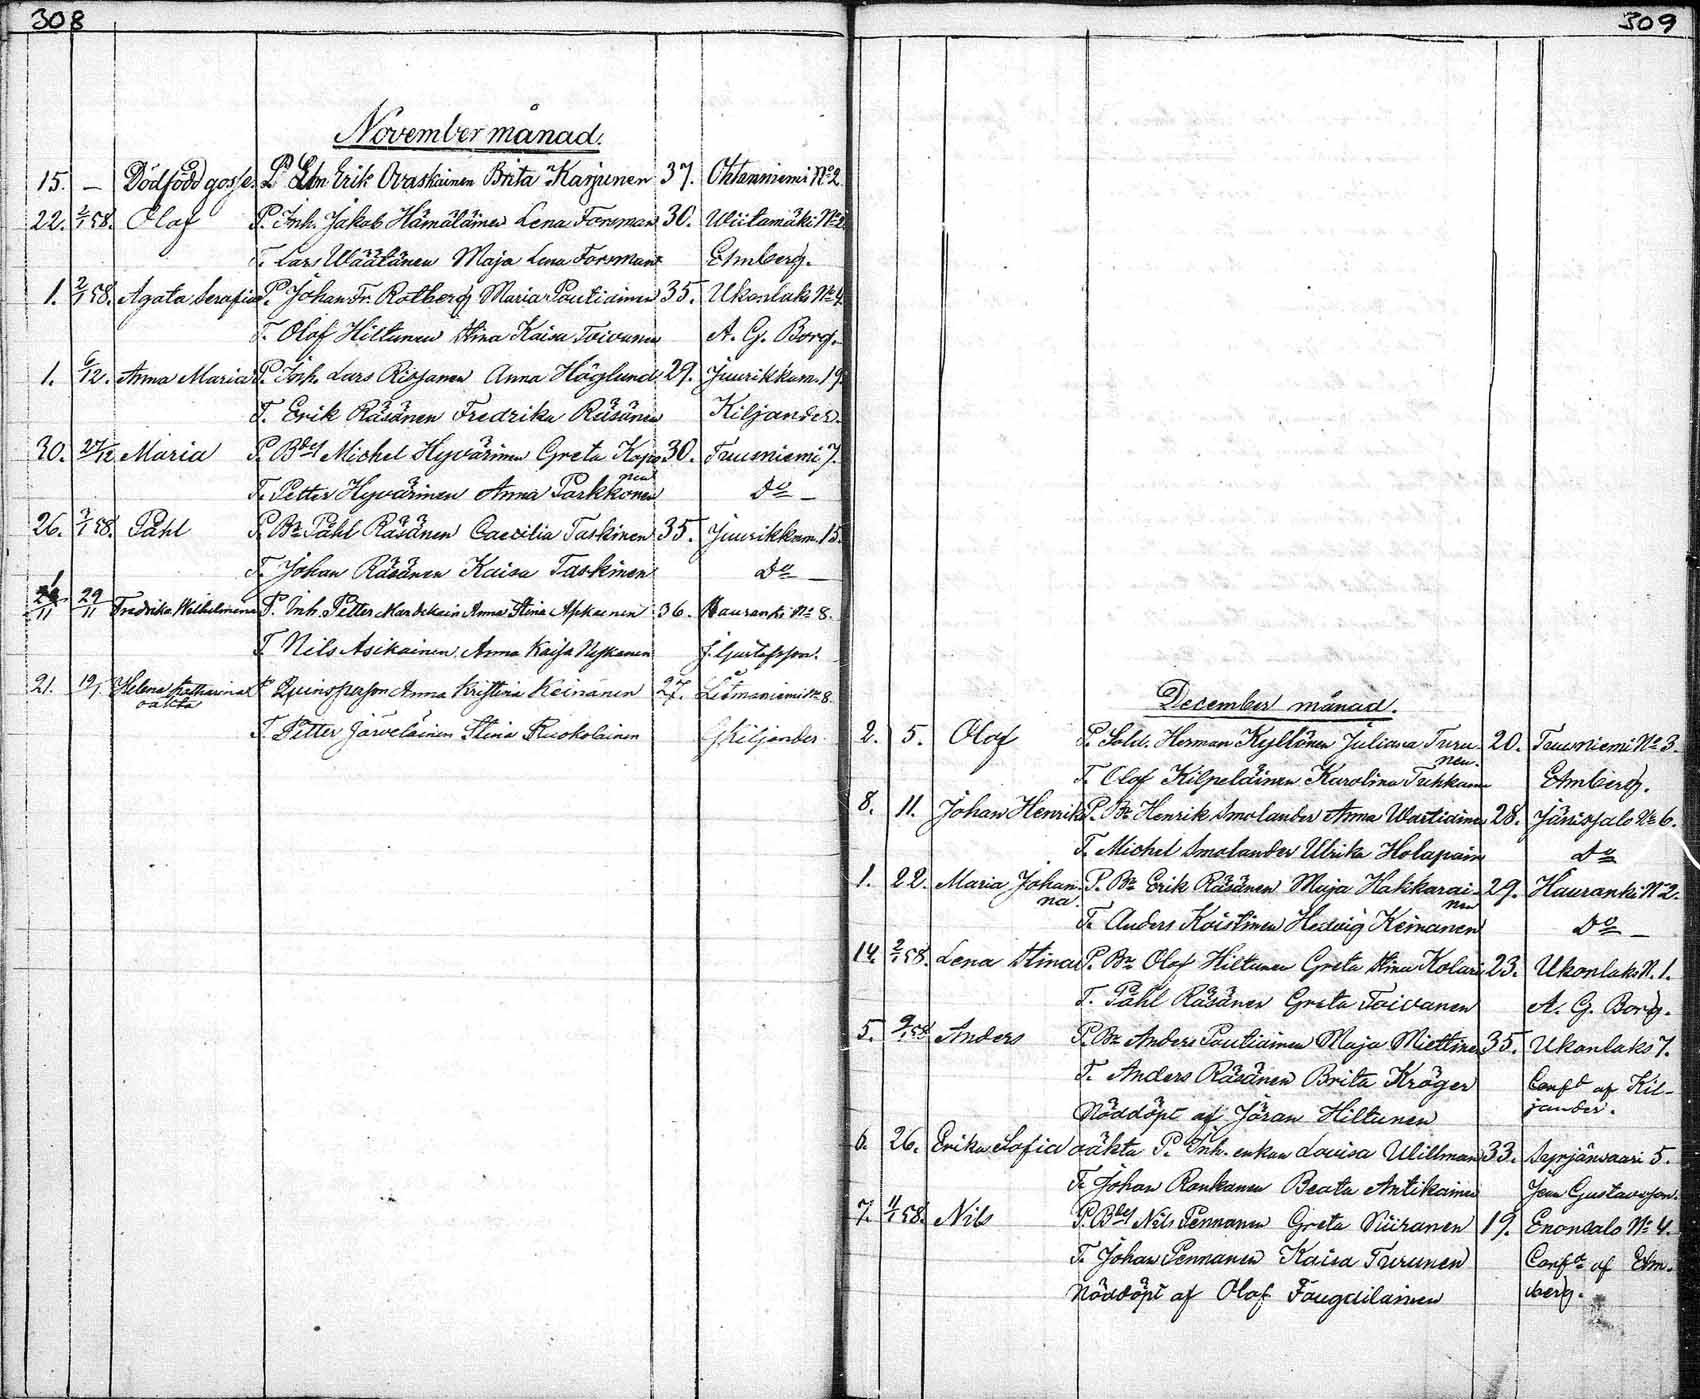 308
November månad.
15. — Dödfödd gosse. P. Erik Ovaskainen Brita Karjunen 37. Ohtaniemi No 2
22. 2/1 58. Olof P. Inh. Jakob Hämäläinen Lena Forsman 30. Wiitamäki No 2
T. Lars Väätänen Maja Lena Forsman Elmberg.
1. 2/1 58. Agata Serafia P. Johan Fr. Rotberg Maria Pautiainen 35. Ukonlaks No 4
T. Olof Hiltunen Stina Kaisa Toivanen A. G. Borg.
1. 6/12. Anna Maria P. Inh. Lars Rissanen Anna Höglund 29. Juurikkam. 19
T. Erik Räsänen Fredrika Räsänen Kiljander.
30. 27/12 Maria P. Bdes Michel Hyvärinen Greta Kopo- 30. Tuusniemi 7.
nen
T. Petter Hyvärinen Anna Parkkonen Do —
26. 3/1 58. Påhl P. Bn Påhl Räsänen Caecilia Taskinen 35. Juurikkam. 15.
T. Johan Räsänen Kaisa Taskinen Do —
/11 29/11 Fredrika Wilhelmina P. Inh. Petter Anna Stina 36. Hauranki No 8.
T. Nils Asikainen Anna Kaisa Nykänen J. Gustafsson.
21. 19/1 Helena Katharina P. Qvinsperson Anna Kristina Keinänen 27. Litmaniemi No 8.
oäkta
T. Petter Järveläinen Stina Ruokolainen G Kiljander
309
December månad.
2. 5. Olof P. Sold. Herman Kyllönen Juliana Turu- 20. Tuusniemi No 3.
nen.
T. Olof Kilpeläinen Karolina Tuhkanen Elmberg.
8. 11. Johan Henrik P. Bn Henrik Smolander Anna Wartiainen 28. Jänissalo No 6.
T. Michel Smolander Ulrika Holapain Do
1. 22. Maria Johan- P. Bn Erik Räsänen Maja Hakkarai- 29. Hauranki No 2.
na. nen
T. Anders Koistinen Hedvig Keinanen Do —
14. 2/1 58. Lena Stina P. Bn Olof Hiltunen Greta Stina Kolari 23. Ukonlaks N. 1.
T. Påhl Räsänen Greta Toivanen A. G. Borg.
5. 9/1 58 Anders P. Bn Anders Pautiainen Maja Miettinen 35. Ukonlaks 7.
T. Anders Räsänen Brita Kröger Confd af Kil-
Nöddöpt af Jöran Hiltunen jander.
6. 26. Erika Sofia oäkta P. Inh. enkan Lovisa Willman 33. Syrjänvaari 5.
T. Johan Ronkanen Beata Antikainen Gustavsson.
7. 11/1 58. Nils P. Bdes Nils Pennanen Greta Niiranen 19. Enonsalo No 4.
T. Johan Pennanen Kaisa Turunen Confd af Elm-
Nöddöpt af Olof Taugdilainen berg.